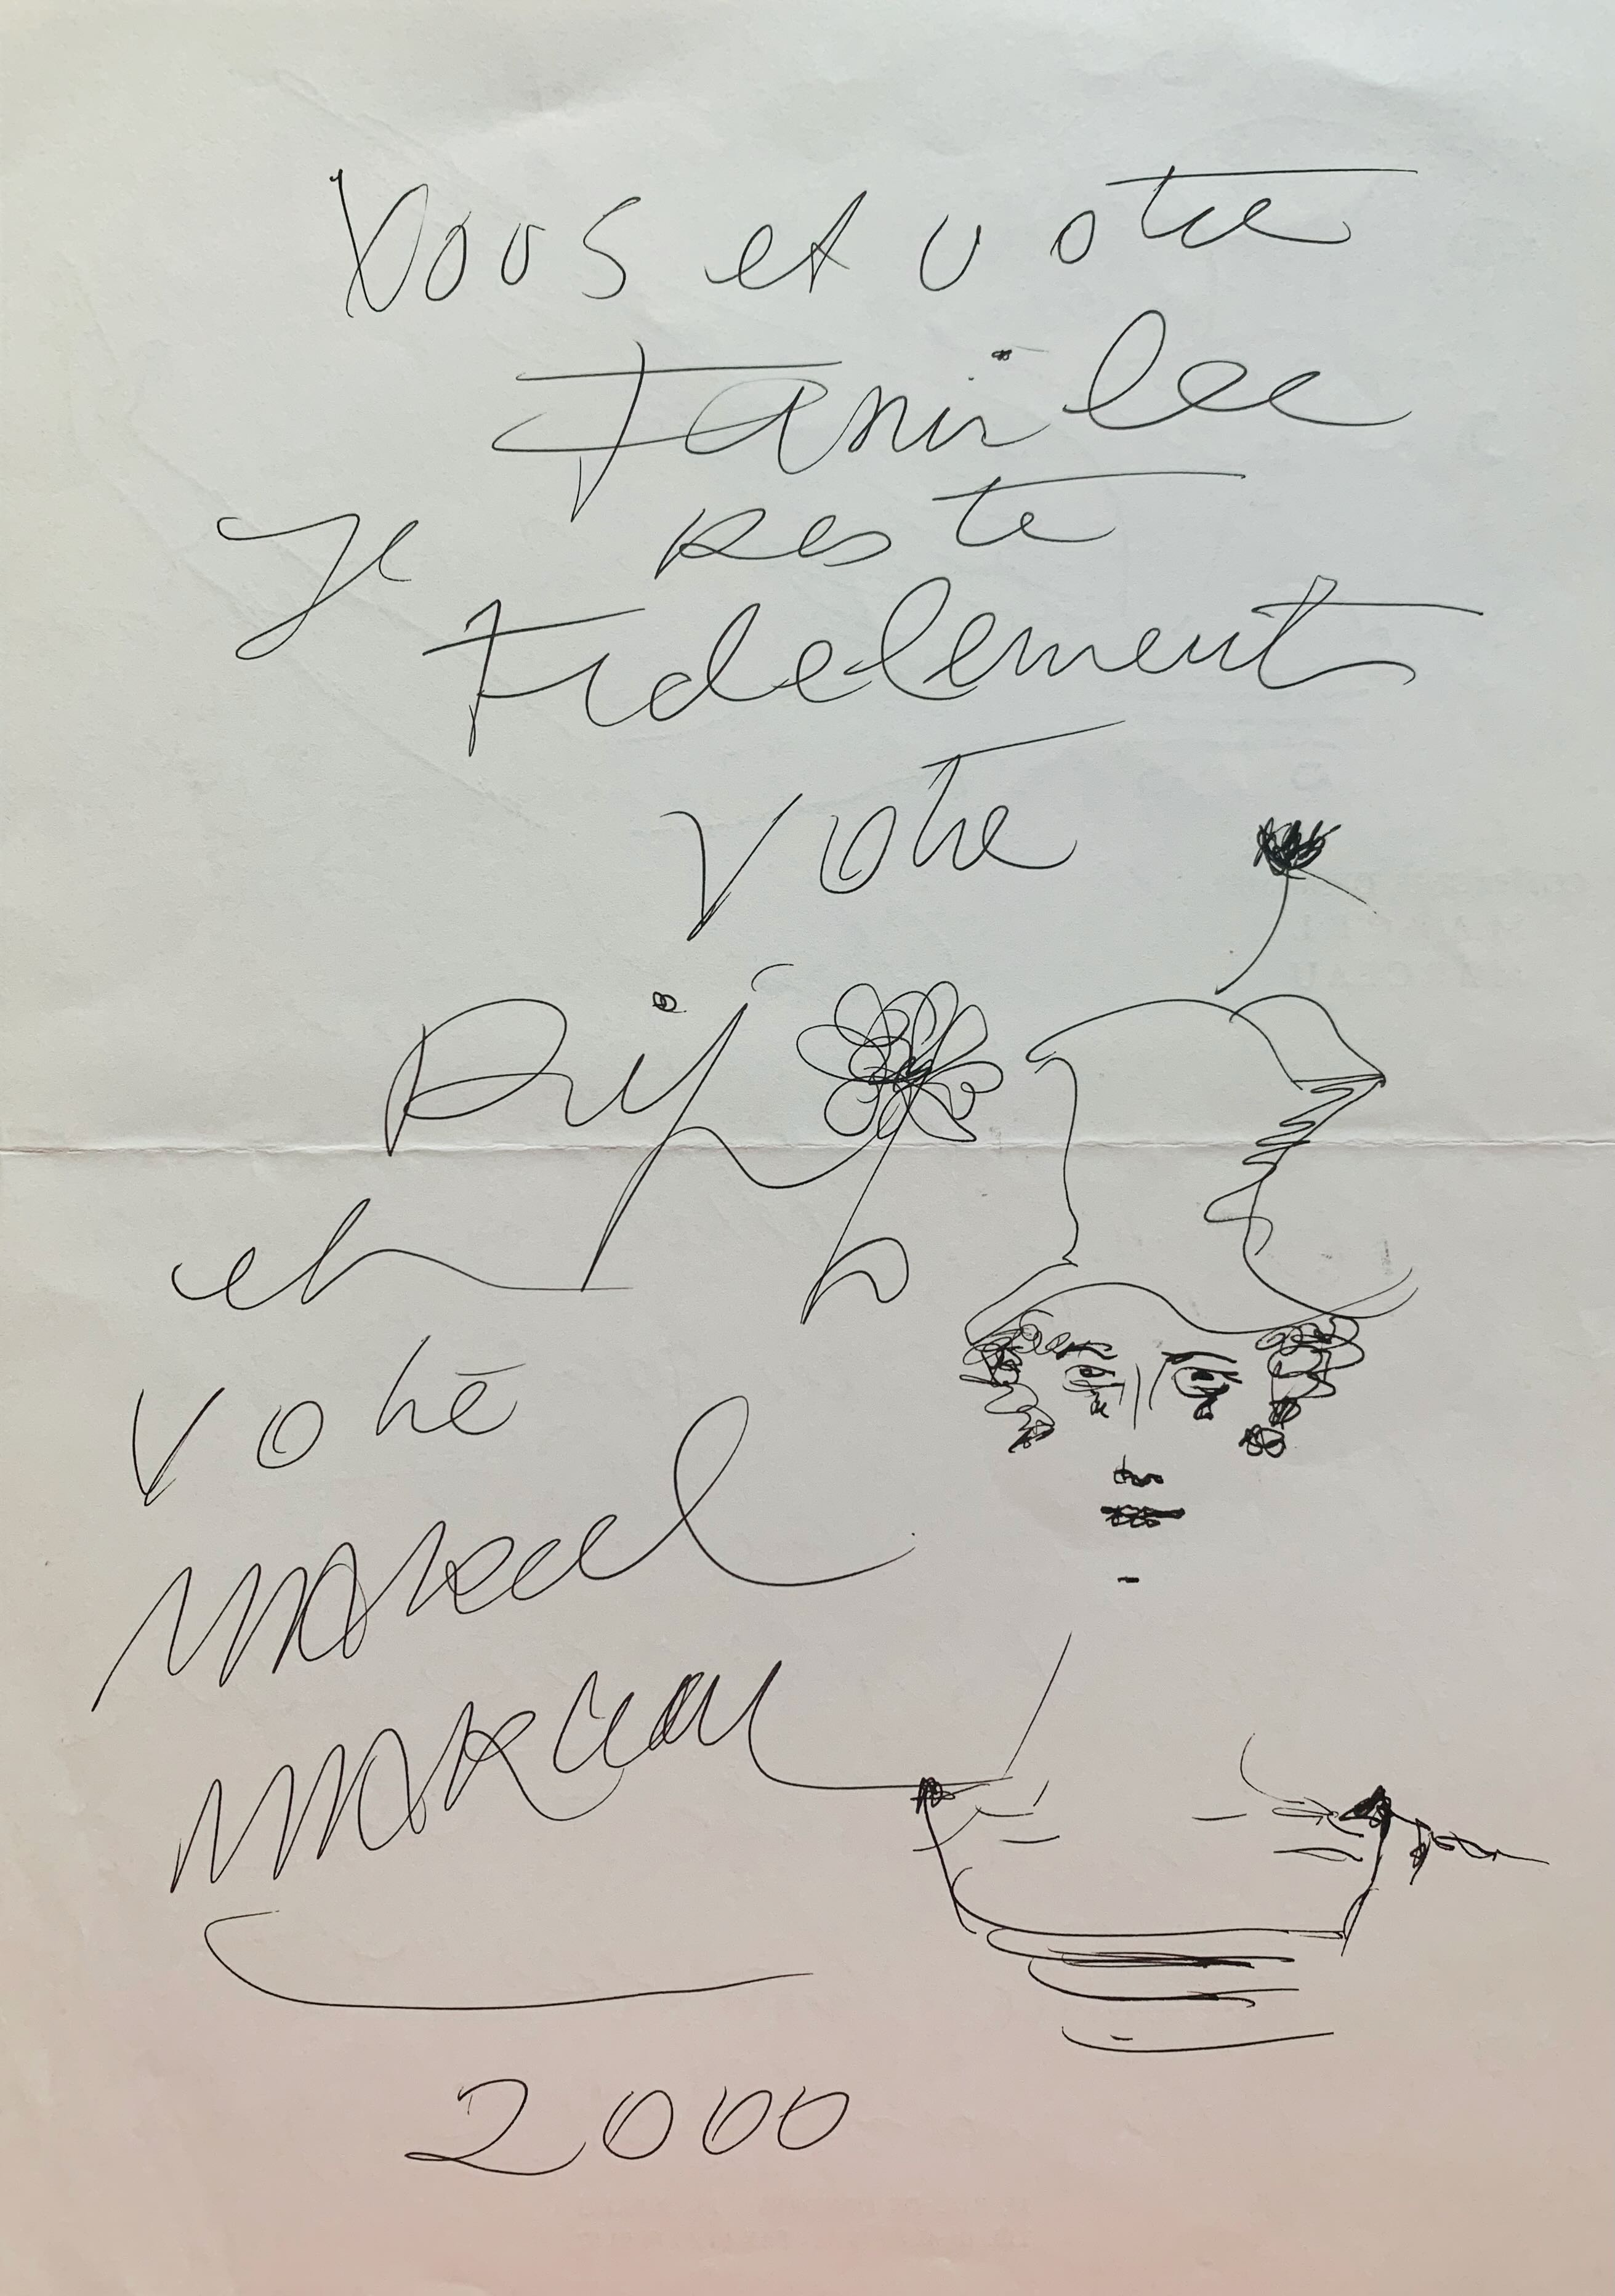 Vous et votre
famille
Je reste
fidelement
votre
Bip
et
votre
Marcel
Marceau
2000